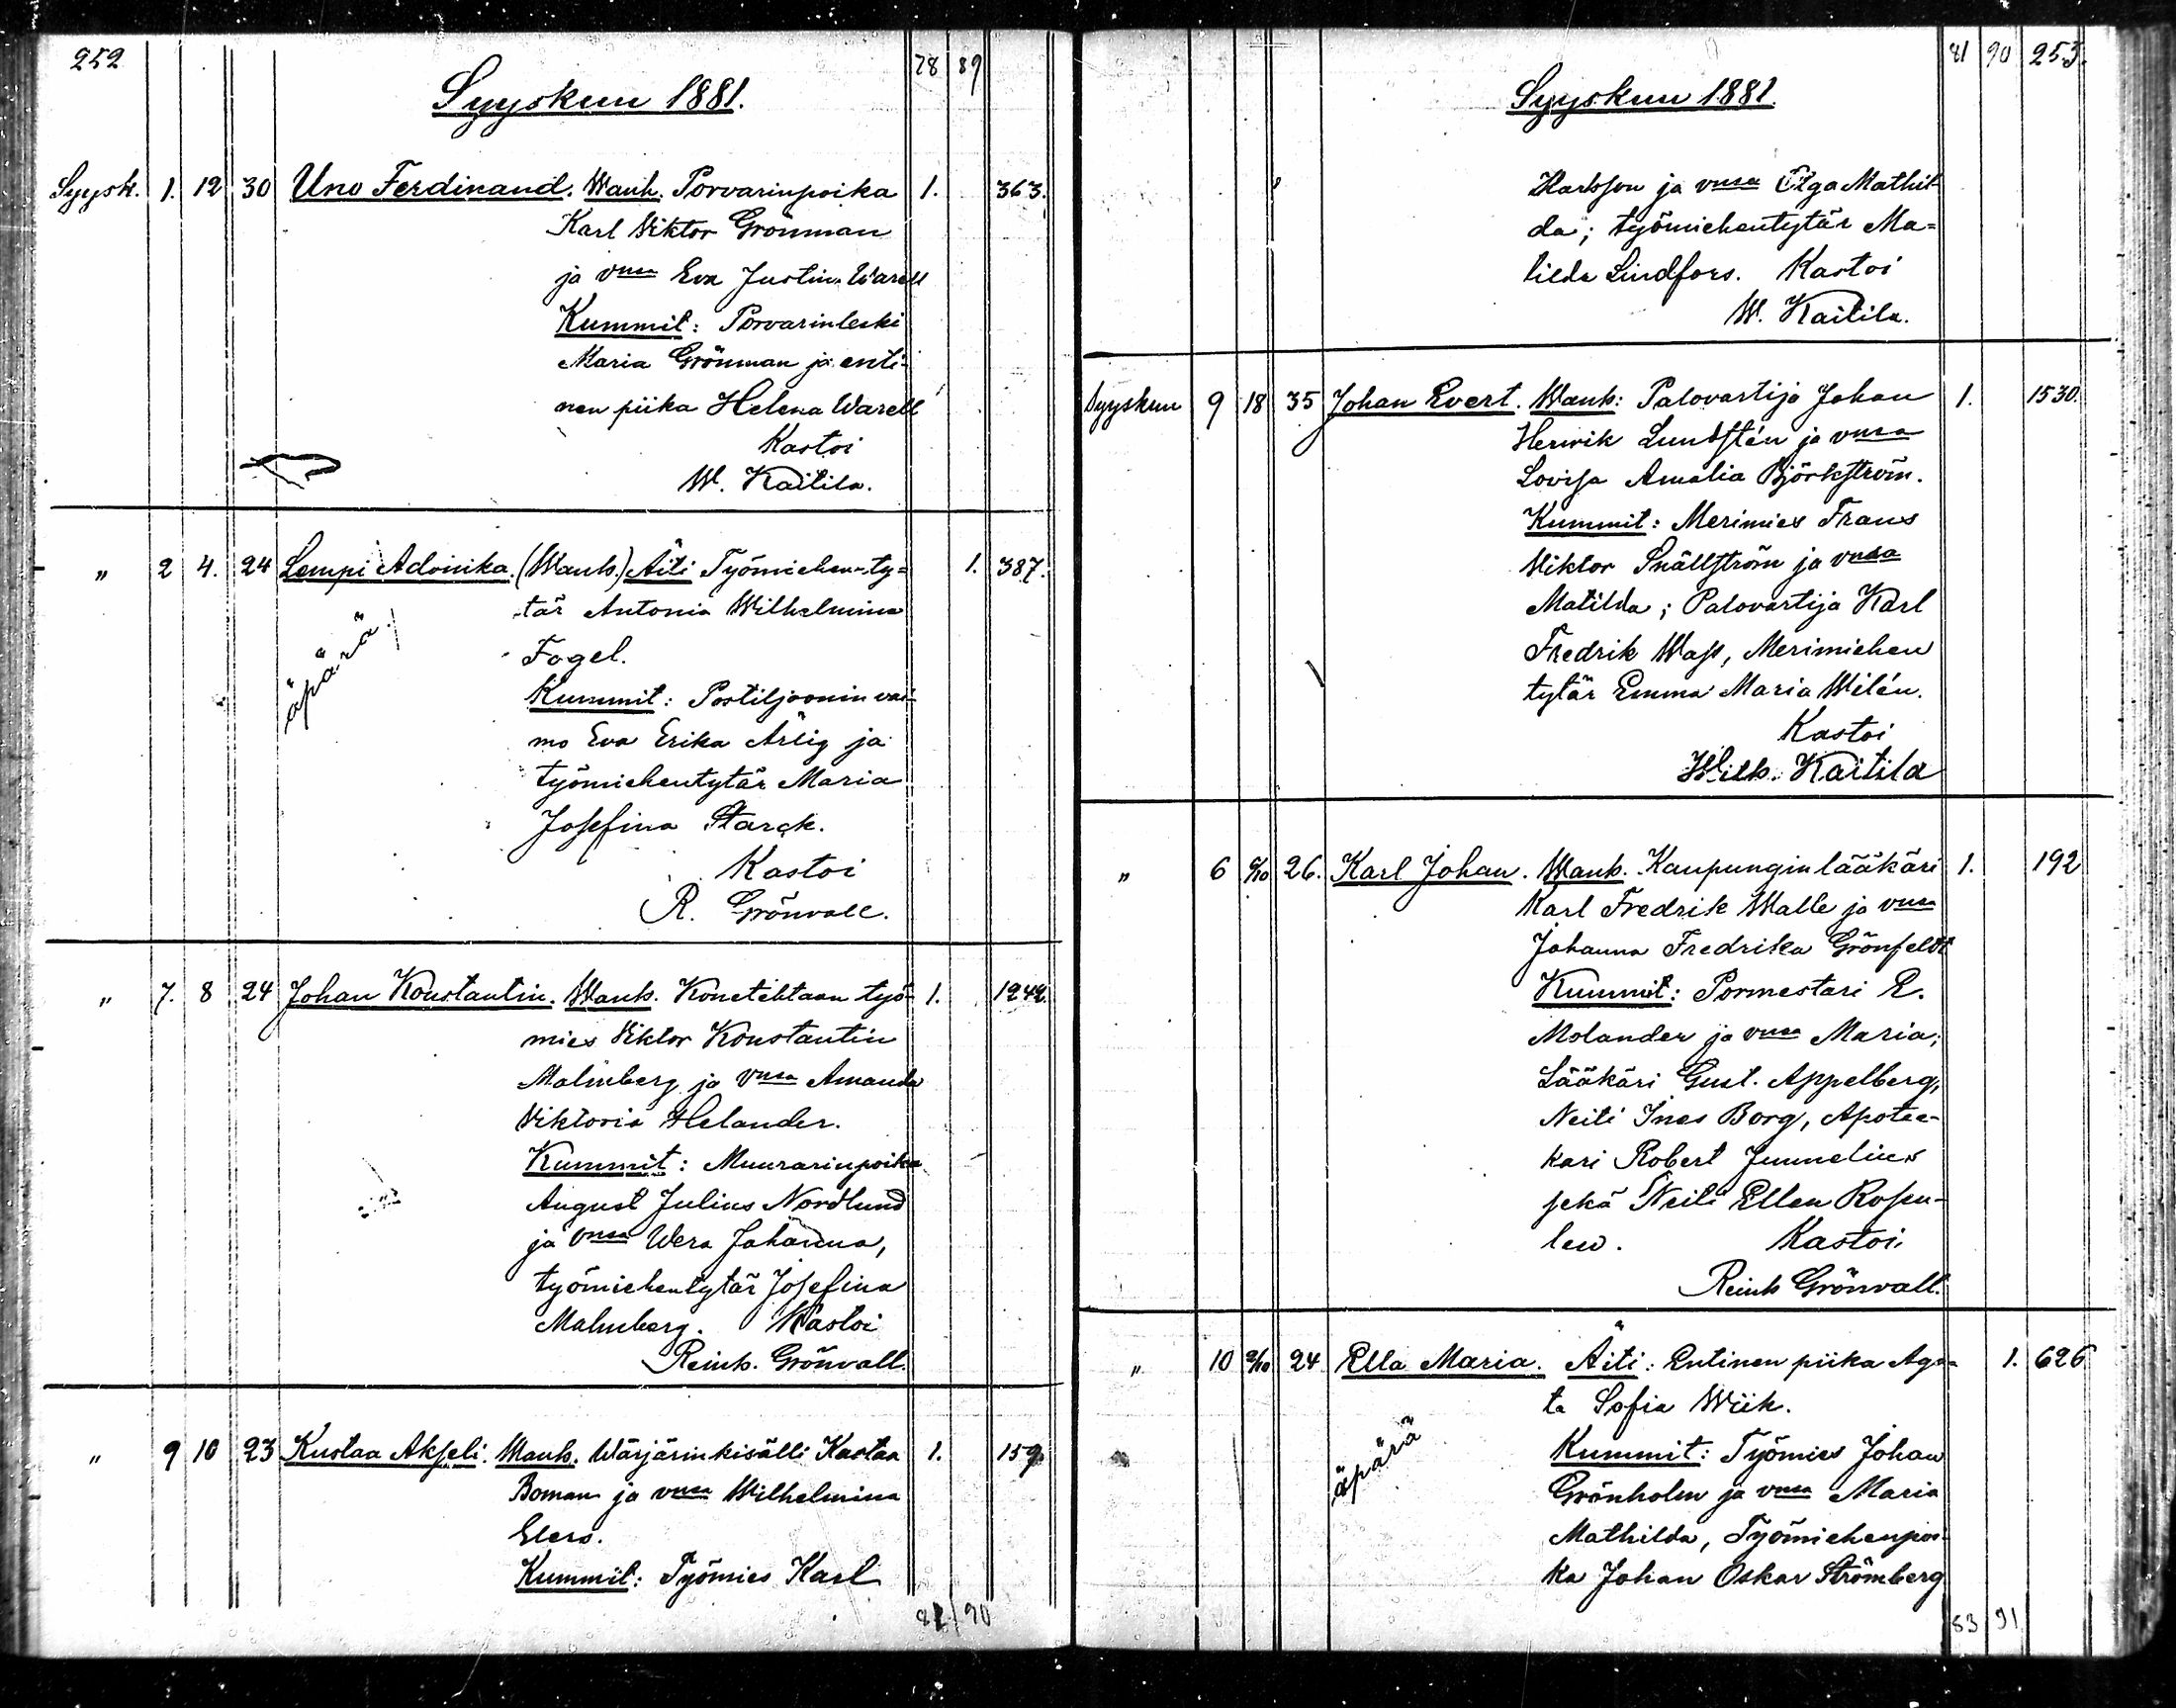 252 78 89
Syyskuu 1881.
Syysk. 1. 12 30 Uno Ferdinand. Wanh. Porvarinpoika 1. 363.
Karl Viktor Grönman
ja vmsa Eva Justina Warell
Kummit: Porvarinleski
Maria Grönman ja enti-
nen piika Helena Warell
Kastoi
W. Kaitila.
" 2 4. 24 Lempi Adonika. (Wanh.) Äiti Työmiehen-ty= 1. 387.
tär Antonia Wilhelmina
äpärä
Fogel.
Kummit: Postiljoonin vai-
mo Eva Erika Ärlig ja
työmiehentytär Maria
Josefina Starck.
Kastoi
R. Grönvall.
" 7. 8 24 Johan Konstantin. Wanh. Konetehtaan työ- 1. 1242.
mies Viktor Konstantin
Malmberg ja vmsa Amanda
Viktoria Helander.
Kummit: Muurarinpoika
August Julius Nordlund
ja vmsa Wera Johanna,
työmiehentytär Josefina
Malmberg. Kastoi
Reinh. Grönvall.
" 9 10 23 Kustaa Akseli. Wanh. Wärjärinkisälli Kustaa 1. 159.
Boman ja vmsa Wilhelmina
Elers.
Kummit: Työmies Karl
82 90
81 90 253.
Syyskuu 1881.
Karlsson ja vmsa Olga Mathil-
da; työmiehentytär Ma=
tilda Lindfors. Kastoi
W. Kaitila.
Syyskuu 9 18 35 Johan Evert. Wanh: Palovartija Johan 1. 1530.
Henrik Lundstén ja vmsa
Lovisa Amalia Björkström.
Kummit: Merimies Frans
Viktor Snällström ja vmsa
Matilda; Palovartija Karl
Fredrik Wass, Merimiehen
tytär Emma Maria Wilén.
Kastoi
Wilh. Kaitila
" 6 2/10 26. Karl Johan. Wanh. Kaupunginlääkäri 1. 192
Karl Fredrik Walle ja vmsa
Johanna Fredrika Grönfeldt
Kummit: Pormestari E.
Molander ja vmsa Maria;
Lääkäri Gust. Appelberg,
Neiti Ines Borg, Apotee-
kari Robert Junnelius
sekä Neiti Ellen Rosen-
lew. Kastoi
Reinh Grönvall.
" 10 2/10 24 Ella Maria. Äiti: Entinen piika Aga= 1. 626
ta Sofia Wiik.
äpärä
Kummit: Työmies Johan
Grönholm ja vmsa Maria
Mathilda, Työmiehenpoi-
ka Johan Oskar Strömberg
83 91